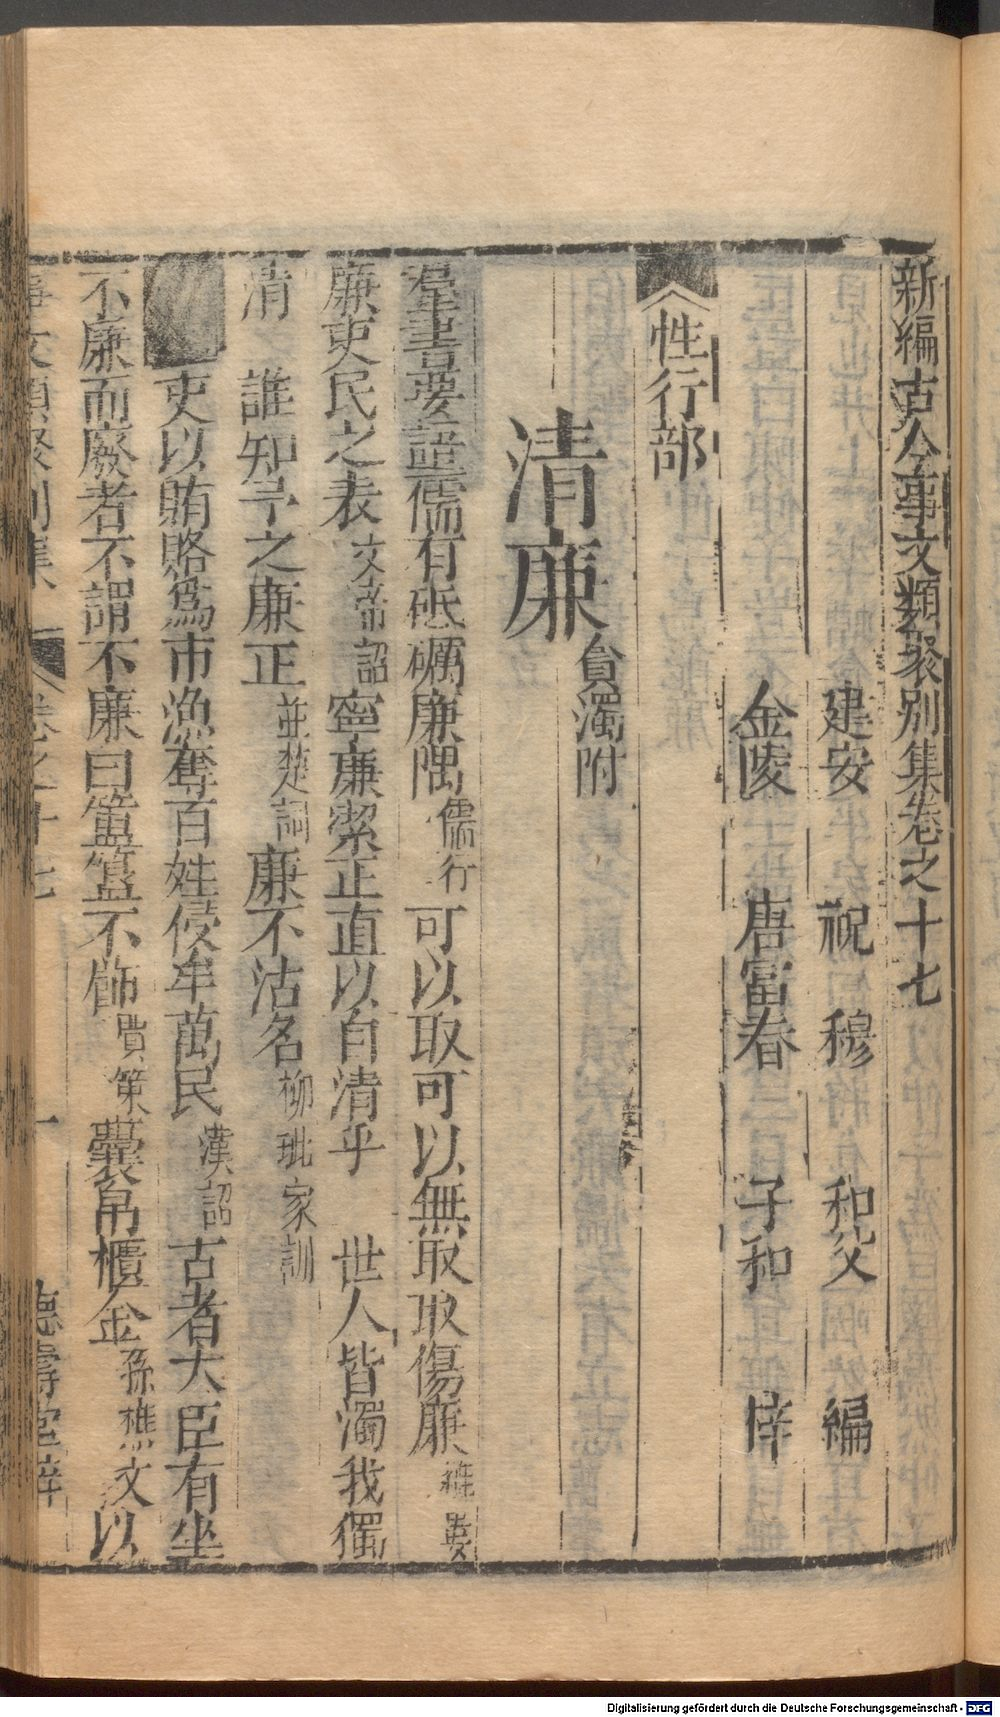 新編古今事文類聚別集卷之十七
建安 祝 穆 和父 編
金陵 唐富春 子和 梓
性行部
清廉 貪濁附
羣書要語儒有砥礪廉隅儒行 可以取可以無取取傷廉
廉吏民之表文帝詔 寧廉潔正直以自清乎 世人皆濁我獨
清 誰知予之廉正並楚詞 廉不沽名柳玭家訓
吏以賄賂為市漁奪百姓侵牟萬民漢詔 古者大臣有坐
不廉而廢者不謂不廉曰簠簋不飾賈策 囊帛櫃金孫樵文 以
事文類聚別集 卷之十七 一 德壽堂梓
Digitalisierung gefördert durch die Deutsche Forschungsgemeinschaft - DFG